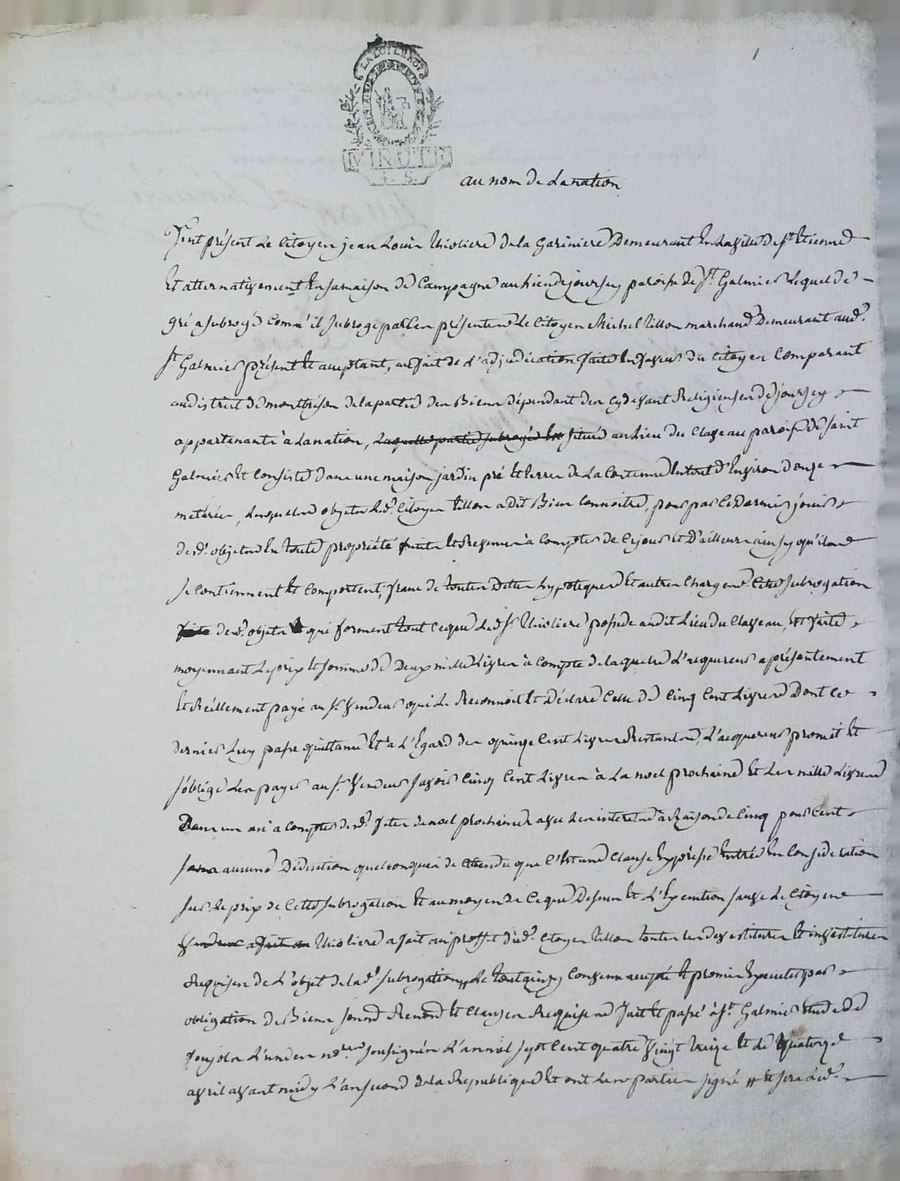 1
LA LOI LE ROI
MINUTE
4. S.
au nom de La nation
fut présent Le Citoyen jean Louis thioliere de la Garinière Demeurant En La ville de st Etienne
Et alternativement En sa maison de Campagne au Lieu de joursey paroisse de St Galmier Lequel de
gré a subrogé comm'il subroge par Les présentes Le Citoyen Michel tillon marchand Demeurant aud.
St Galmier présent Et acceptant, au fait de L'adjudication faite En faveur du Citoyen Comparant
au district de montbrison de la partie des Biens dépendant des cy devant Religieuses de joursey
appartenante à La nation, Laquelle partie subrogée Est située au Lieu du Clazeau paroisse de saint
Galmier Et Consiste dans une maison jardin pré Et terre de La Contenue En tout d'Environ douze
meterées, Lesquels objets Led. Citoyen tillon a dit Bien Connoitre, pour par Ce dernier jouir
desd. objets En toute propriété à Compter de Ce jour Et d'ailleurs ainsy qu'ils
se Contiennent Et Comportent, franc de toutes Dettes hypoteques Et autres Charges Cette subrogation
desd. objets qui forment tout Ce que Led. sr thioliere possede au dit Lieu du Clazeau, Est faite
moyennant Le prix Et somme de Deux mille Livres à Compte de Laquelle L'acquereur a présentement
Et Réellement payé au sr Vendeur qui Le Reconnoit Et Déclare Celle de Cinq Cent Livres Dont Ce
dernier Luy passe quittance Et à L'Egard des quinze Cent Livres Restantes, L'acquereur promet Et
s'oblige Les payer au sr Vendeur savoir Cinq Cent Livres à La noel prochaine Et Les mille Livres
Dans un an à Compter desd. fetes de noel prochaines avec Les interets à Raison de Cinq pour Cent
sans aucune Déduction quelconque attendu que C'Est une Clause Expresse Entrée En Consideration
sur Le prix de Cette subrogation Et au moyen de Ce que Dessus Et L'Execution sauve Le Citoyen
Vendeur a fait thioliere a fait au proffit dud. Citoyen tillon toutes Les devestitures Et investitures
Requises de L'objet de lad. subrogation, Le tout ainsy Convenu accepté Et promis Executer par
obligation de Biens soumis Renond Et Clauses Requises fait Et passé à St Galmier Etude de
L'un des nres soussignés L'année sept Cent quatre Vingt treize Et Le quatorze
avril avant midy L'an second de la Republique Et ont Les parties signé